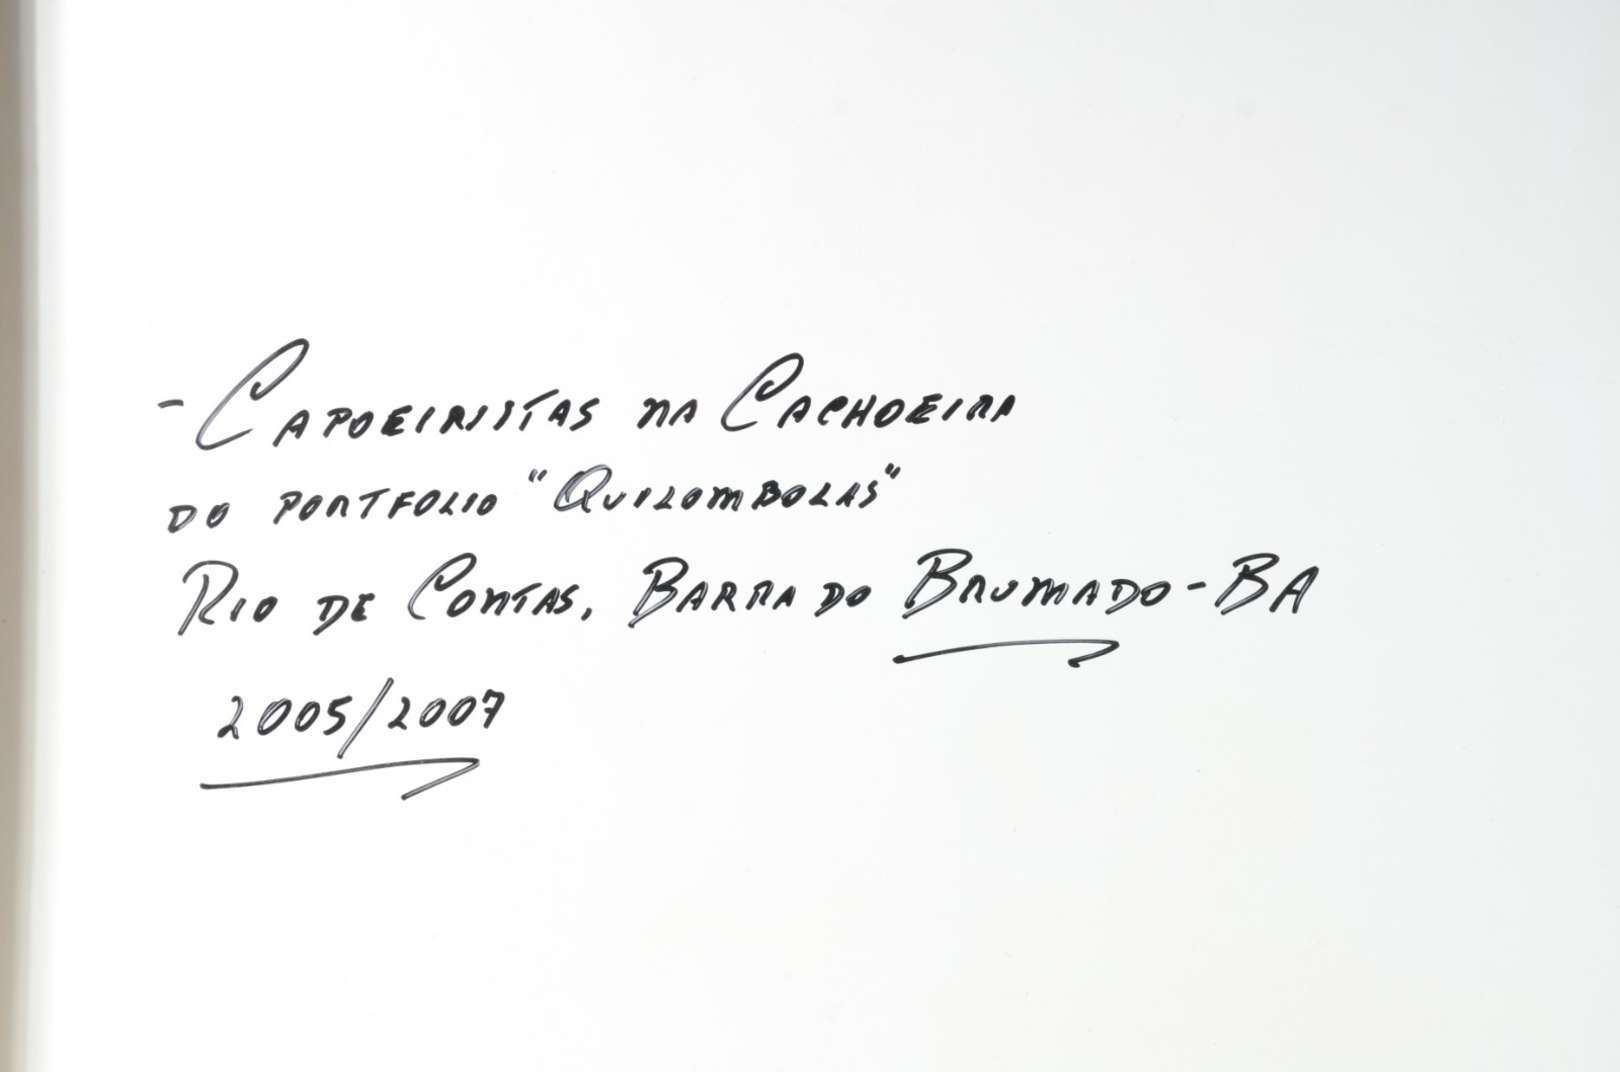 - CAPOEIRISTAS NA CACHOEIRA
DO PORTFOLIO "QUILOMBOLAS"
RIO DE CONTAS, BARRA DO BRUMADO - BA
2005/2007